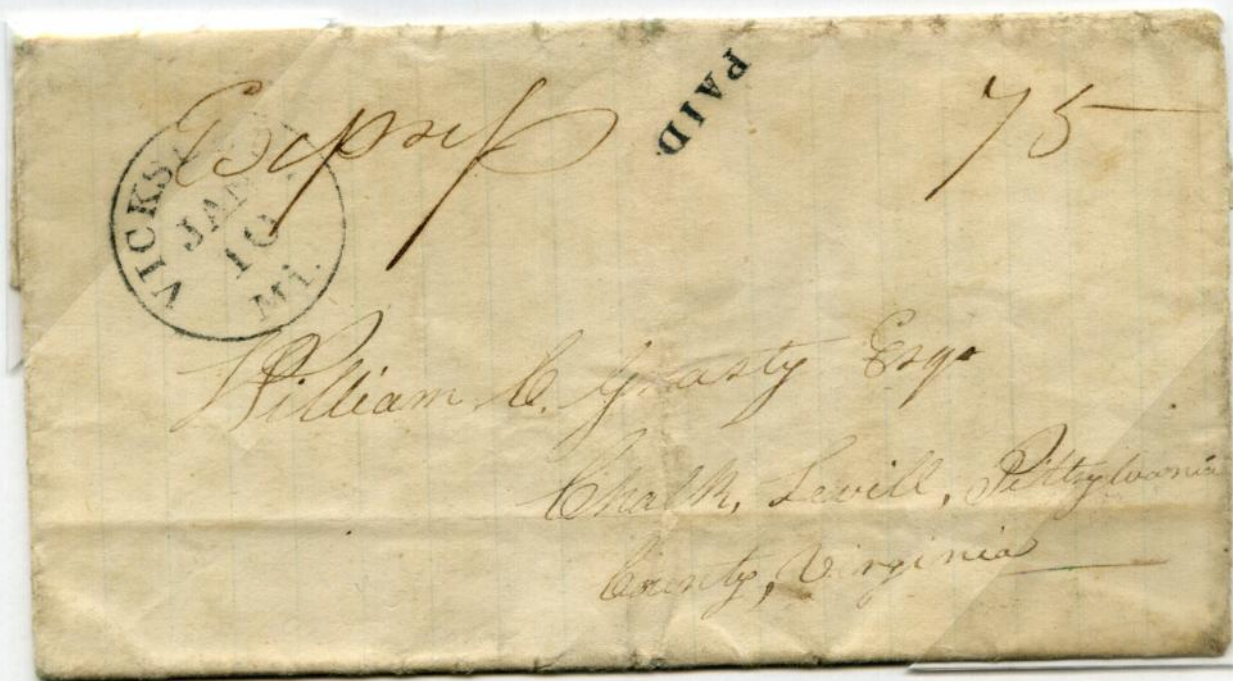 Express
PAID
75
VICKSBURG
JAN
10
Mi.
William C. Grasty Esqr
Chalk, Levill, Pittsylvania
County, Virginia